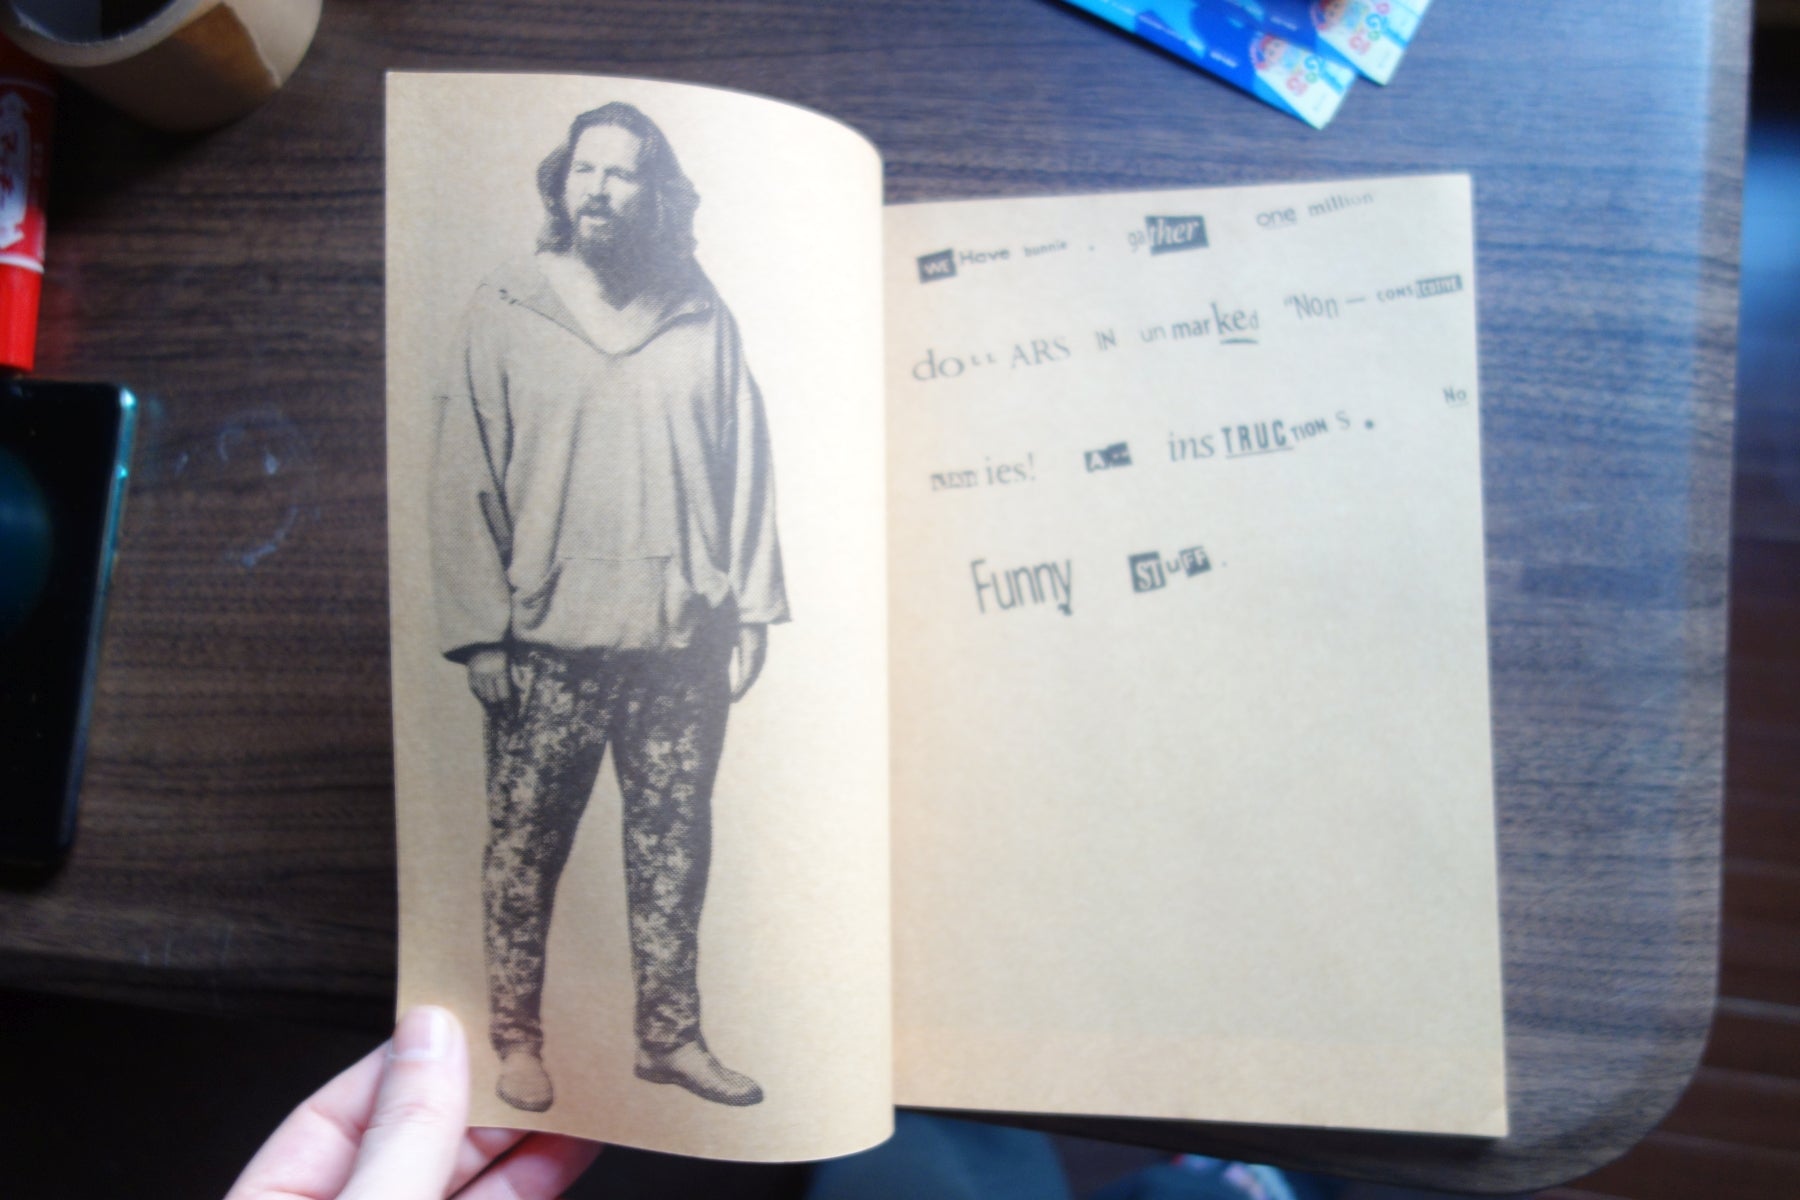 WE Have bunnie . gather one million
doLLARS IN unmarked "Non — CONSECUTIVE
ies! insTRUCTIONS. No
Funny STUFF.